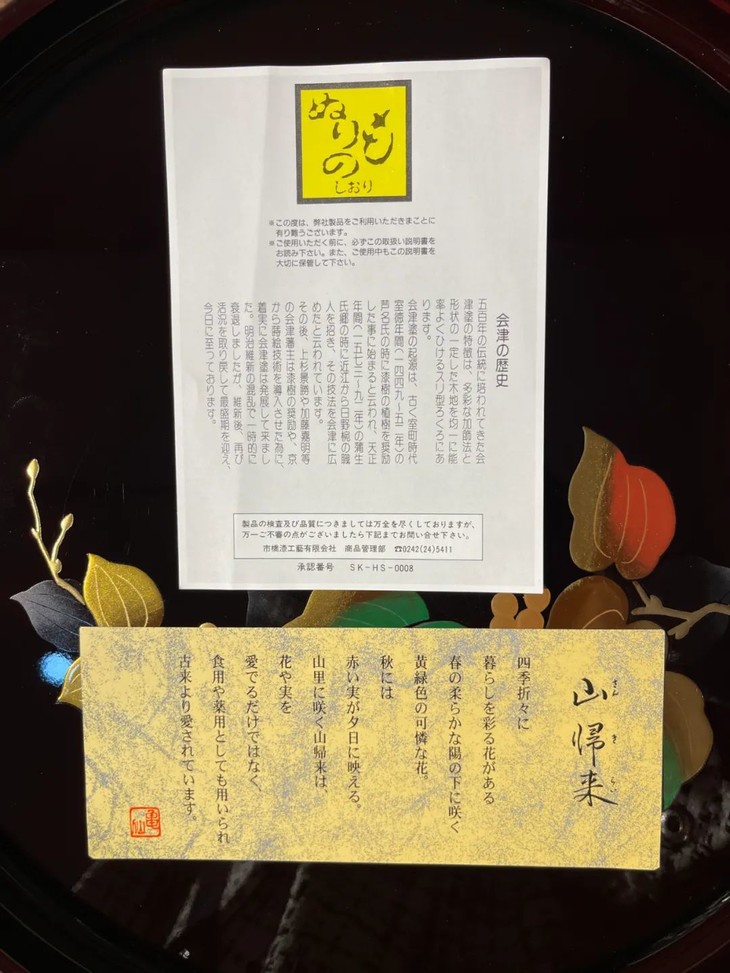 ぬりもの
しおり
※この度は、弊社製品をご利用いただきまことに
有り難うございます。
※ご使用いただく前に、必ずこの取扱い説明書を
お読み下さい。また、ご使用中もこの説明書を
大切に保管して下さい。
会津の歴史
五百年の伝統に培われてきた会
津塗の特徴は、多彩な加飾法と
形状の一定した木地を均一に能
率よくひけるスリ型ろくろにあ
ります。
会津塗の起源は、古く室町時代
室徳年間(一四四九〜五二年)の
芦名氏の時に漆樹の植樹を奨励
した事に始まると云われ、天正
年間(一五七三〜九二年)の蒲生
氏郷の時に近江から日野椀の職
人を招き、その技法を会津に広
めたと云われています。
その後、上杉景勝や加藤嘉明等
の会津藩主は漆樹の奨励や、京
から蒔絵技術を導入させた為に、
着実に会津塗は発展して来まし
た。明治維新の混乱で一時的に
衰退しましたが、維新後、再び
活況を取り戻して最盛期を迎え、
今日に至っております。
製品の検査及び品質につきましては万全を尽くしておりますが、
万一ご不審の点がございましたら下記までお問い合せ下さい。
市橋漆工藝有限会社 商品管理部 ☎0242(24)5411
承認番号 SK-HS-0008
山帰来
さんきらい
四季折々に
暮らしを彩る花がある
春の柔らかな陽の下に咲く
黄緑色の可憐な花。
秋には
赤い実が夕日に映える。
山里に咲く山帰来は、
花や実を
愛でるだけではなく、
食用や薬用としても用いられ
古来より愛されています。
亀仙